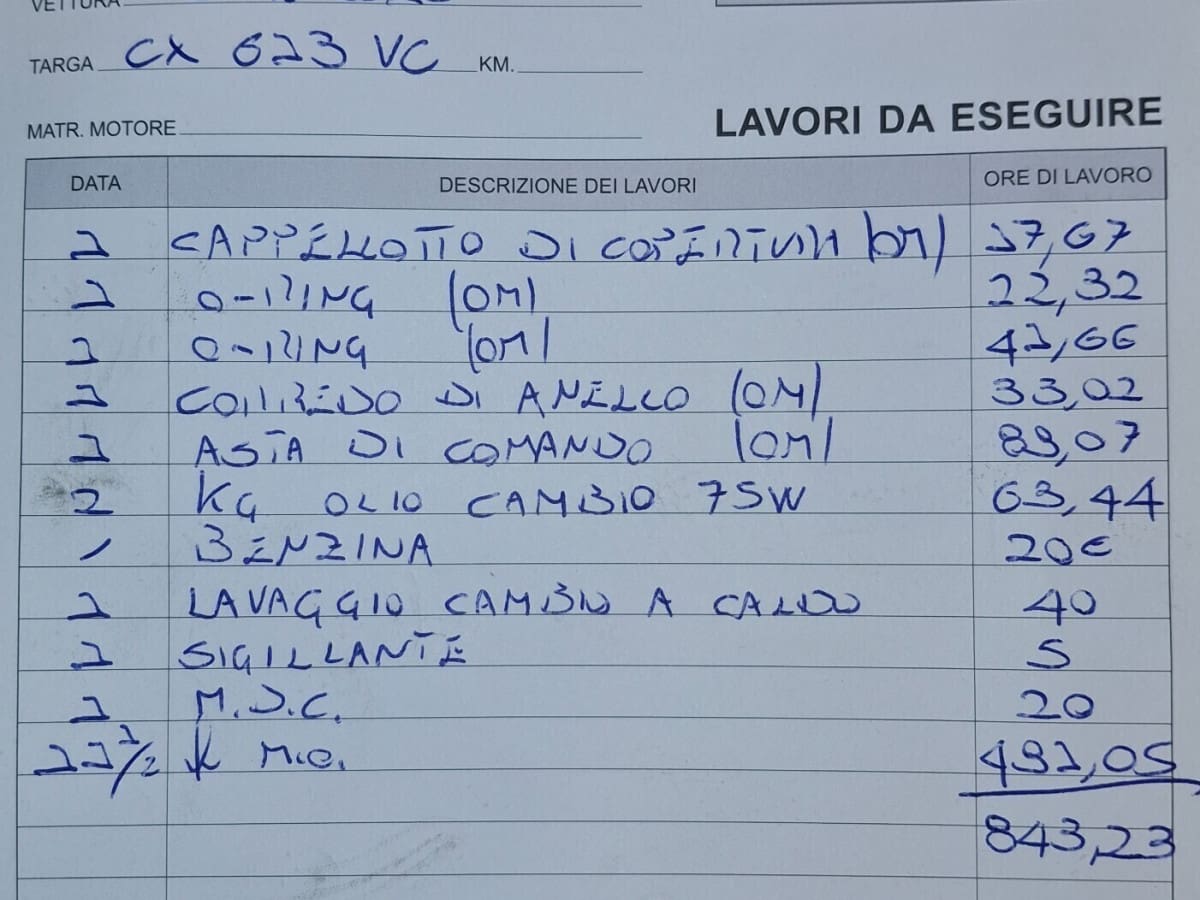 VETTURA
TARGA CX 613 VC KM.
MATR. MOTORE
LAVORI DA ESEGUIRE
DATA DESCRIZIONE DEI LAVORI ORE DI LAVORO
1 CAPPELLOTTO DI COPERTURA (OM) 17,67
1 O-RING (OM) 22,32
1 O-RING (OM) 41,66
1 CORREDO DI ANELLO (OM) 33,02
1 ASTA DI COMANDO (OM) 89,07
2 KG OLIO CAMBIO 75W 63,44
/ BENZINA 20€
1 LAVAGGIO CAMBIO A CALDO 40
1 SIGILLANTE 5
1 M.D.C. 20
11 1/2 h M.O. 491,05
843,23